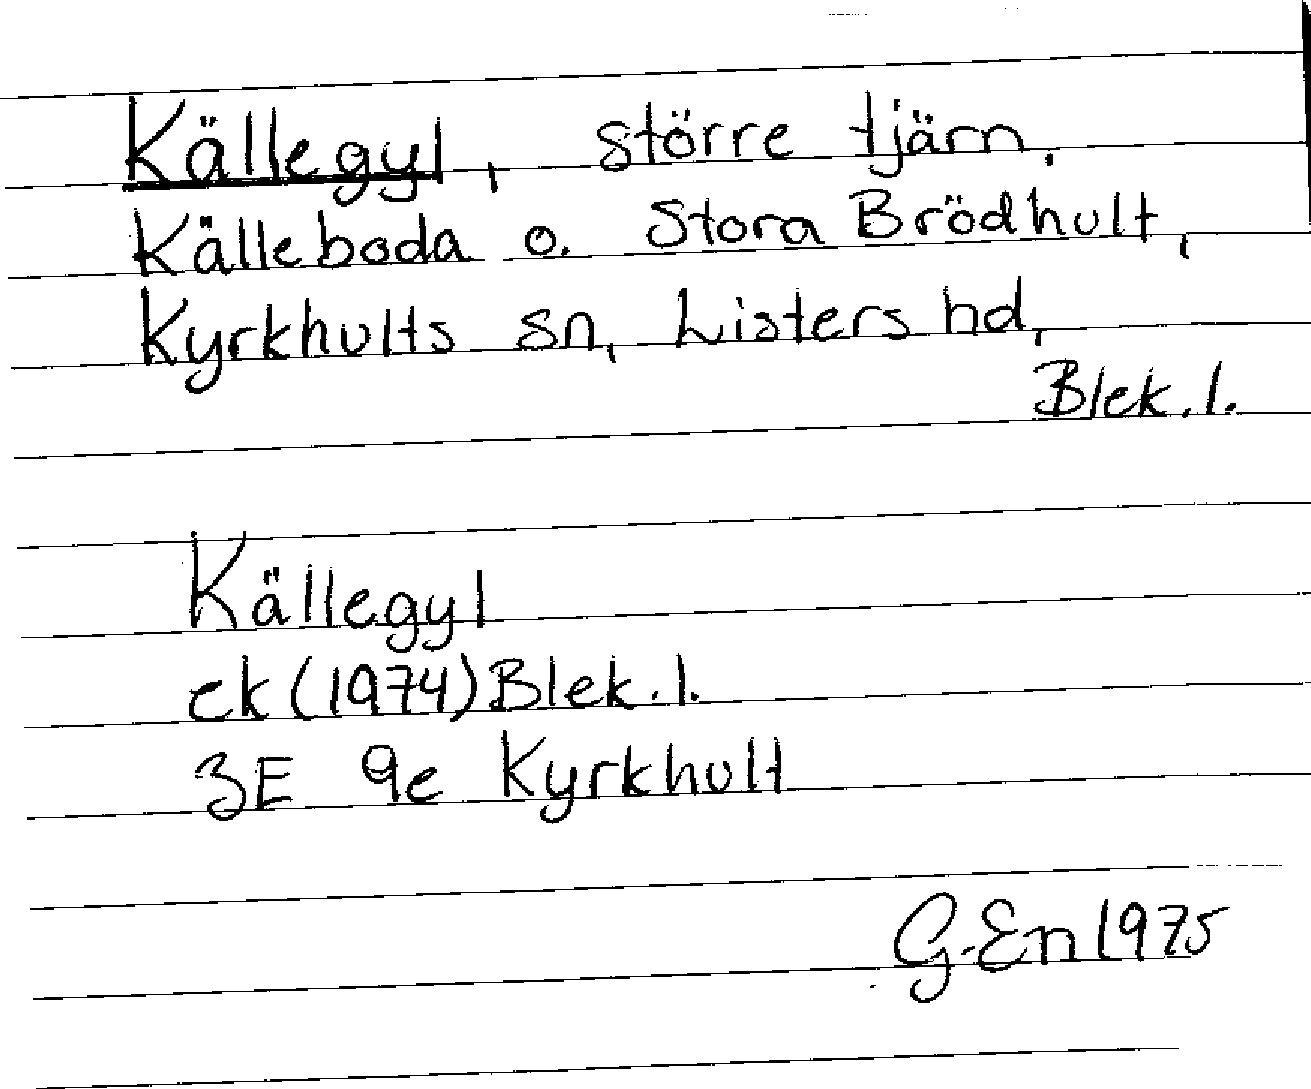 Källegyl, större tjärn.
Källeboda o. Stora Brödhult,
Kyrkhults sn, Listers hd,
Blek. l.
Källegyl
ek (1974) Blek. l.
3E 9e Kyrkhult
G. En 1975